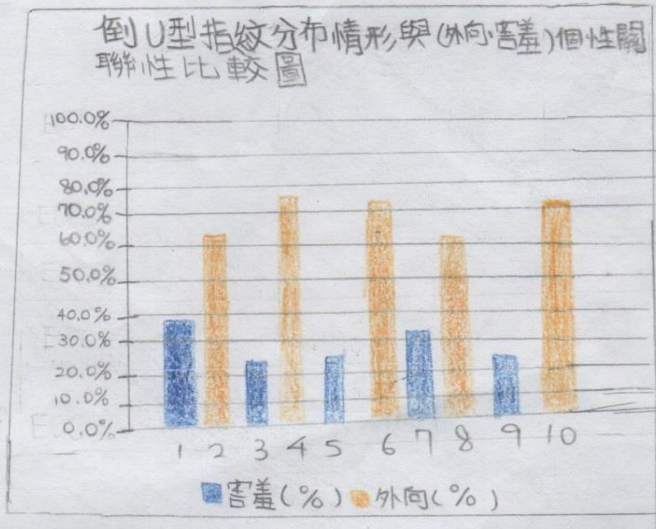 倒U型指紋分布情形與(外向·害羞)個性關
聯性比較圖
100.0%
90.0%
80.0%
70.0%
60.0%
50.0%
40.0%
30.0%
20.0%
10.0%
0.0%
1 2 3 4 5 6 7 8 9 10
害羞(%) 外向(%)